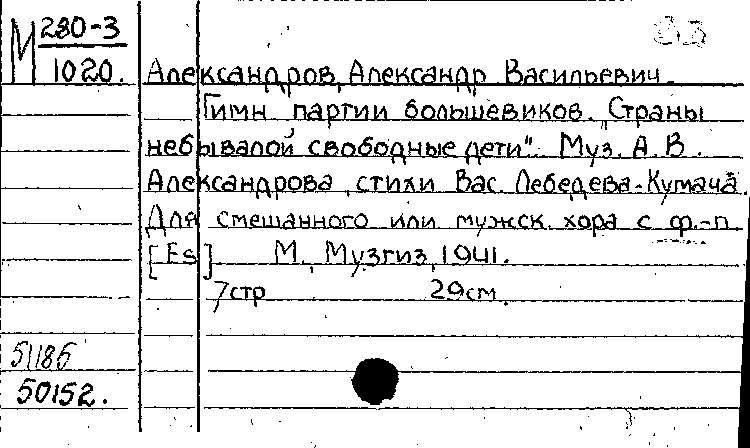 М 280-3
1020.
Александров, Александр Васильевич.
Гимн партии большевиков. „Страны
небывалой свободные дети". Муз. А. В.
Александрова, стихи Вас. Лебедева-Кумача.
Для смешанного или мужск. хора с ф.-п.
[Es] М., Музгиз, 1941.
7стр 29см.
51186
50152.